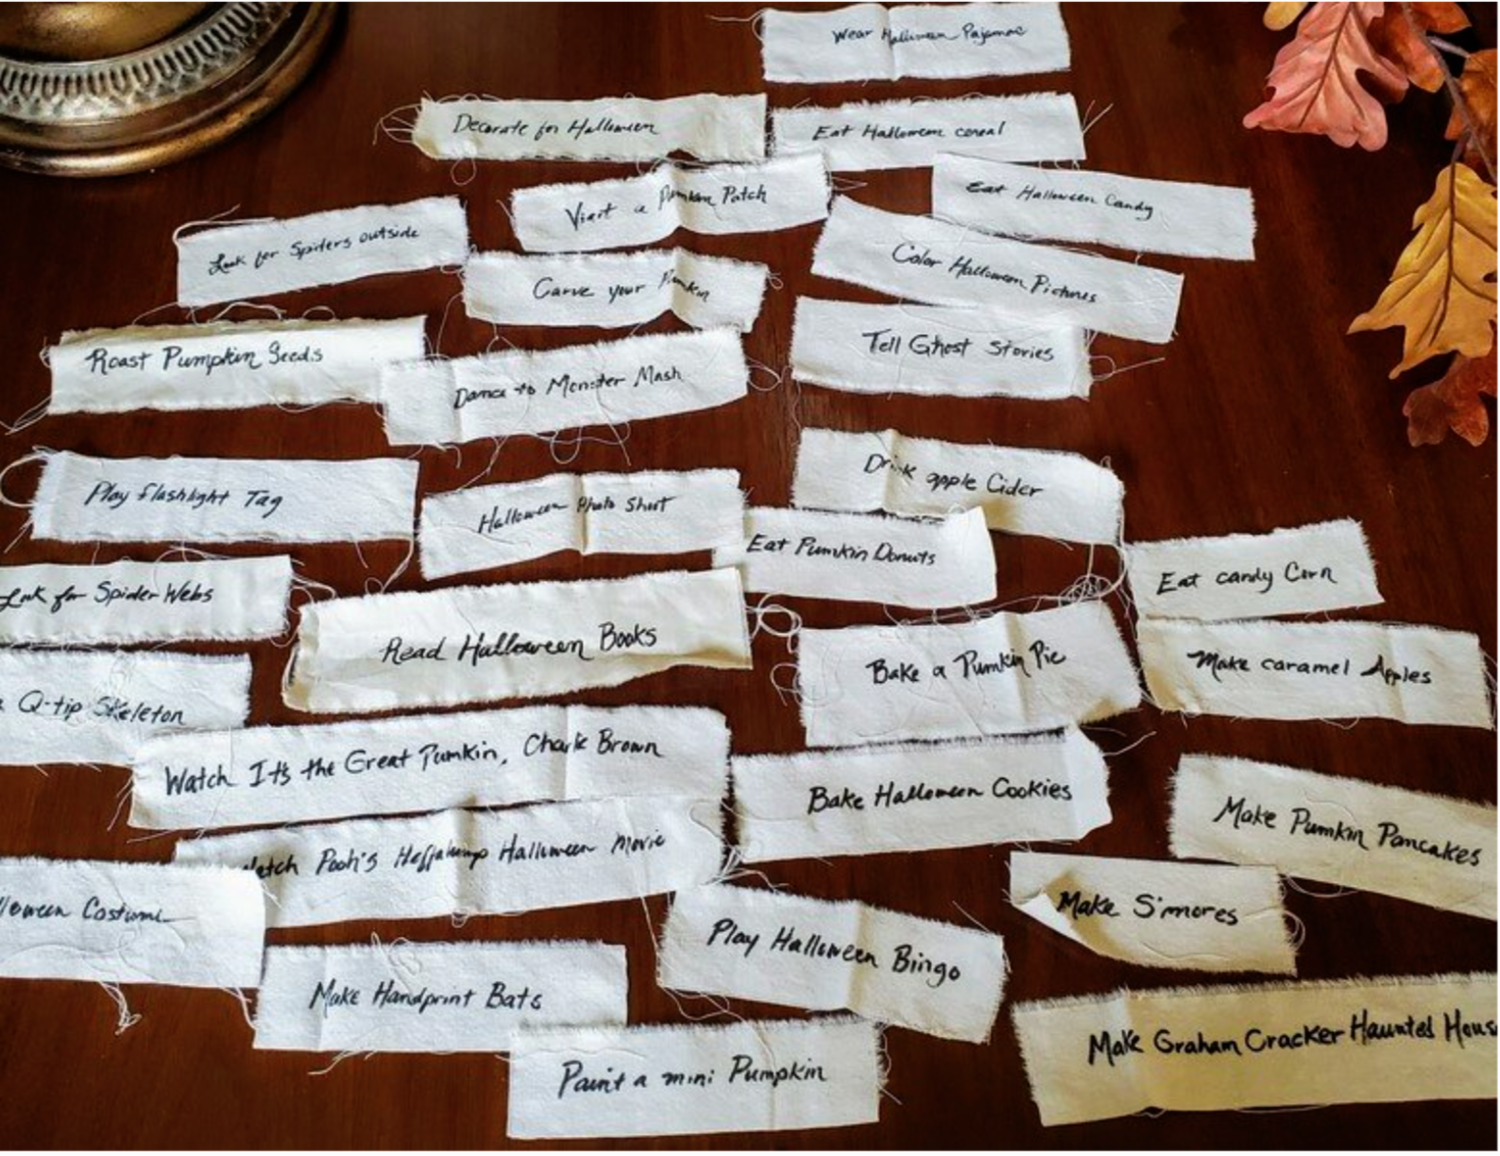 Wear Halloween Pajamas
Decorate for Halloween
Eat Halloween cereal
Visit a Pumkin Patch
Eat Halloween Candy
Look for Spiders outside
Color Halloween Pictures
Carve your Pumkin
Roast Pumpkin Seeds
Tell Ghost Stories
Dance to Monster Mash
Play flashlight Tag
Drink apple Cider
Halloween Photo Shoot
Eat Pumkin Donuts
Eat candy Corn
Look for Spider Webs
Read Halloween Books
Bake a Pumkin Pie
Make caramel Apples
Q-tip Skeleton
Watch It's the Great Pumkin, Charlie Brown
Bake Halloween Cookies
Make Pumkin Pancakes
Watch Pooh's Heffalump Halloween Movie
lloween Costume
Make S'mores
Play Halloween Bingo
Make Handprint Bats
Make Graham Cracker Haunted Hous
Paint a mini Pumpkin